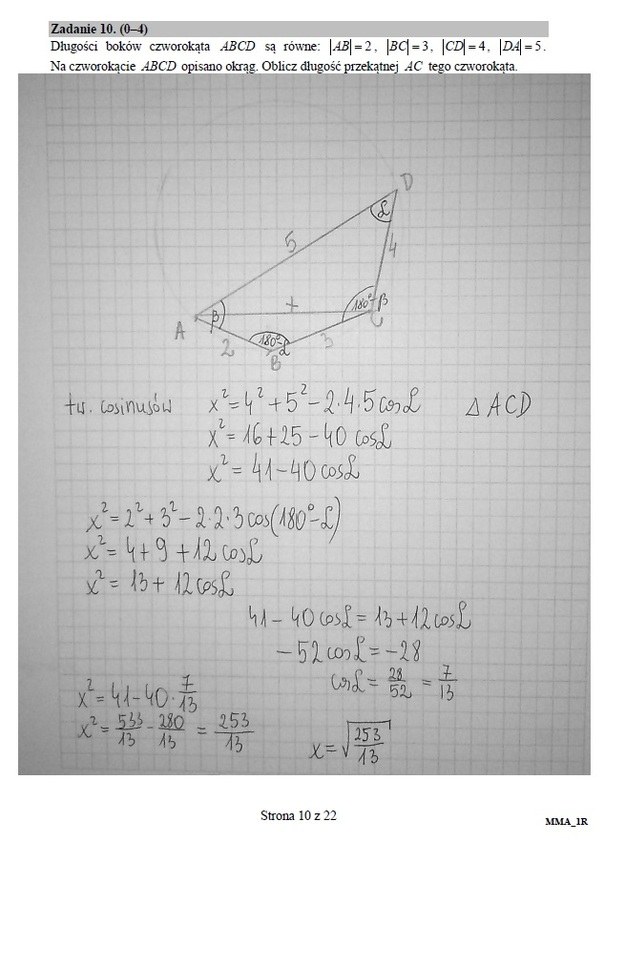 Zadanie 10. (0–4)
Długości boków czworokąta ABCD są równe: |AB|=2, |BC|=3, |CD|=4, |DA|=5.
Na czworokącie ABCD opisano okrąg. Oblicz długość przekątnej AC tego czworokąta.
D
α
5
4
x
180°-β
A
β
C
180°-α
2
3
B
tw. cosinusów x² = 4² + 5² - 2·4·5 cosα Δ ACD
x² = 16 + 25 - 40 cosα
x² = 41 - 40 cosα
x² = 2² + 3² - 2·2·3 cos(180° - α)
x² = 4 + 9 + 12 cosα
x² = 13 + 12 cosα
41 - 40 cosα = 13 + 12 cosα
-52 cosα = -28
cosα = 28/52 = 7/13
x² = 41 - 40 · 7/13
x² = 533/13 - 280/13 = 253/13
x = √(253/13)
Strona 10 z 22
MMA_1R